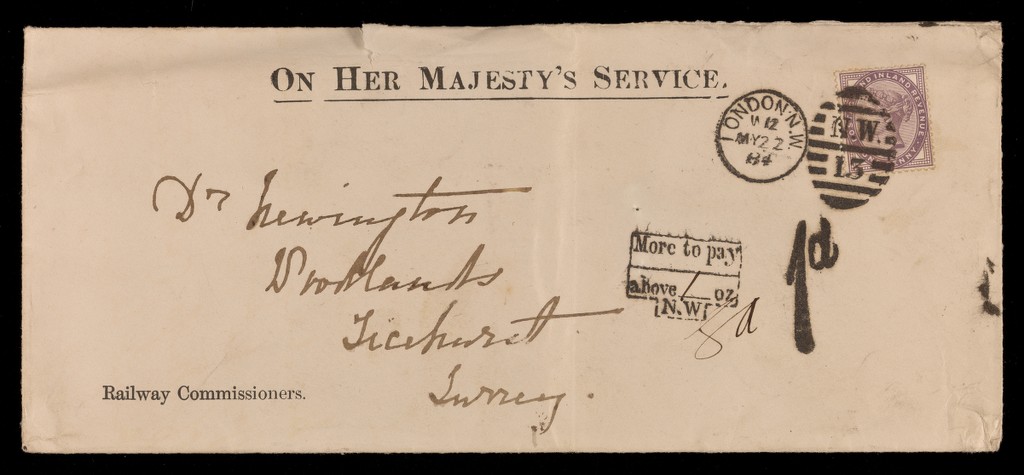 ON HER MAJESTY'S SERVICE.
LONDON·N.W.
W 12
MY 22
84
N.W.
15
INLAND REVENUE
Dr Newington
Woodlands
Ticehurst
Surrey.
More to pay
above 1 oz
N.W
1d
Railway Commissioners.